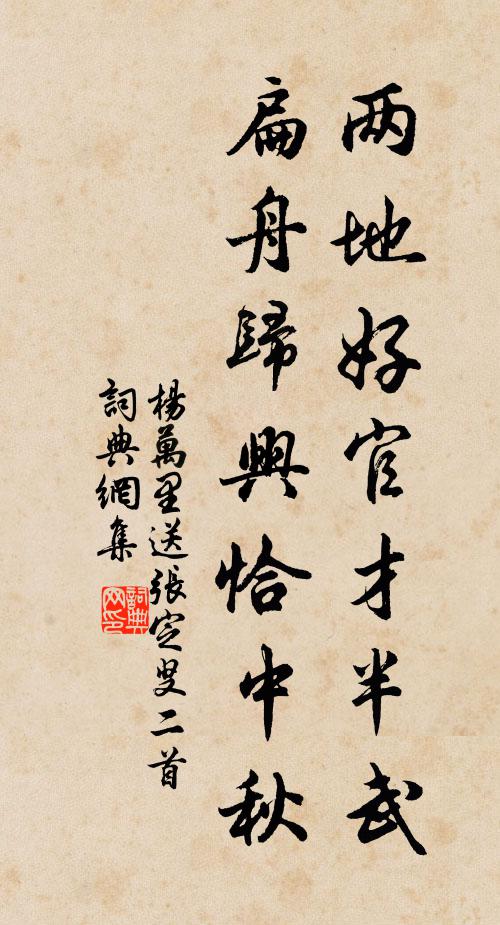 两地好官才半武
扁舟歸興恰中秋
楊萬里送張定叟二首
詞典網集
詞典网印